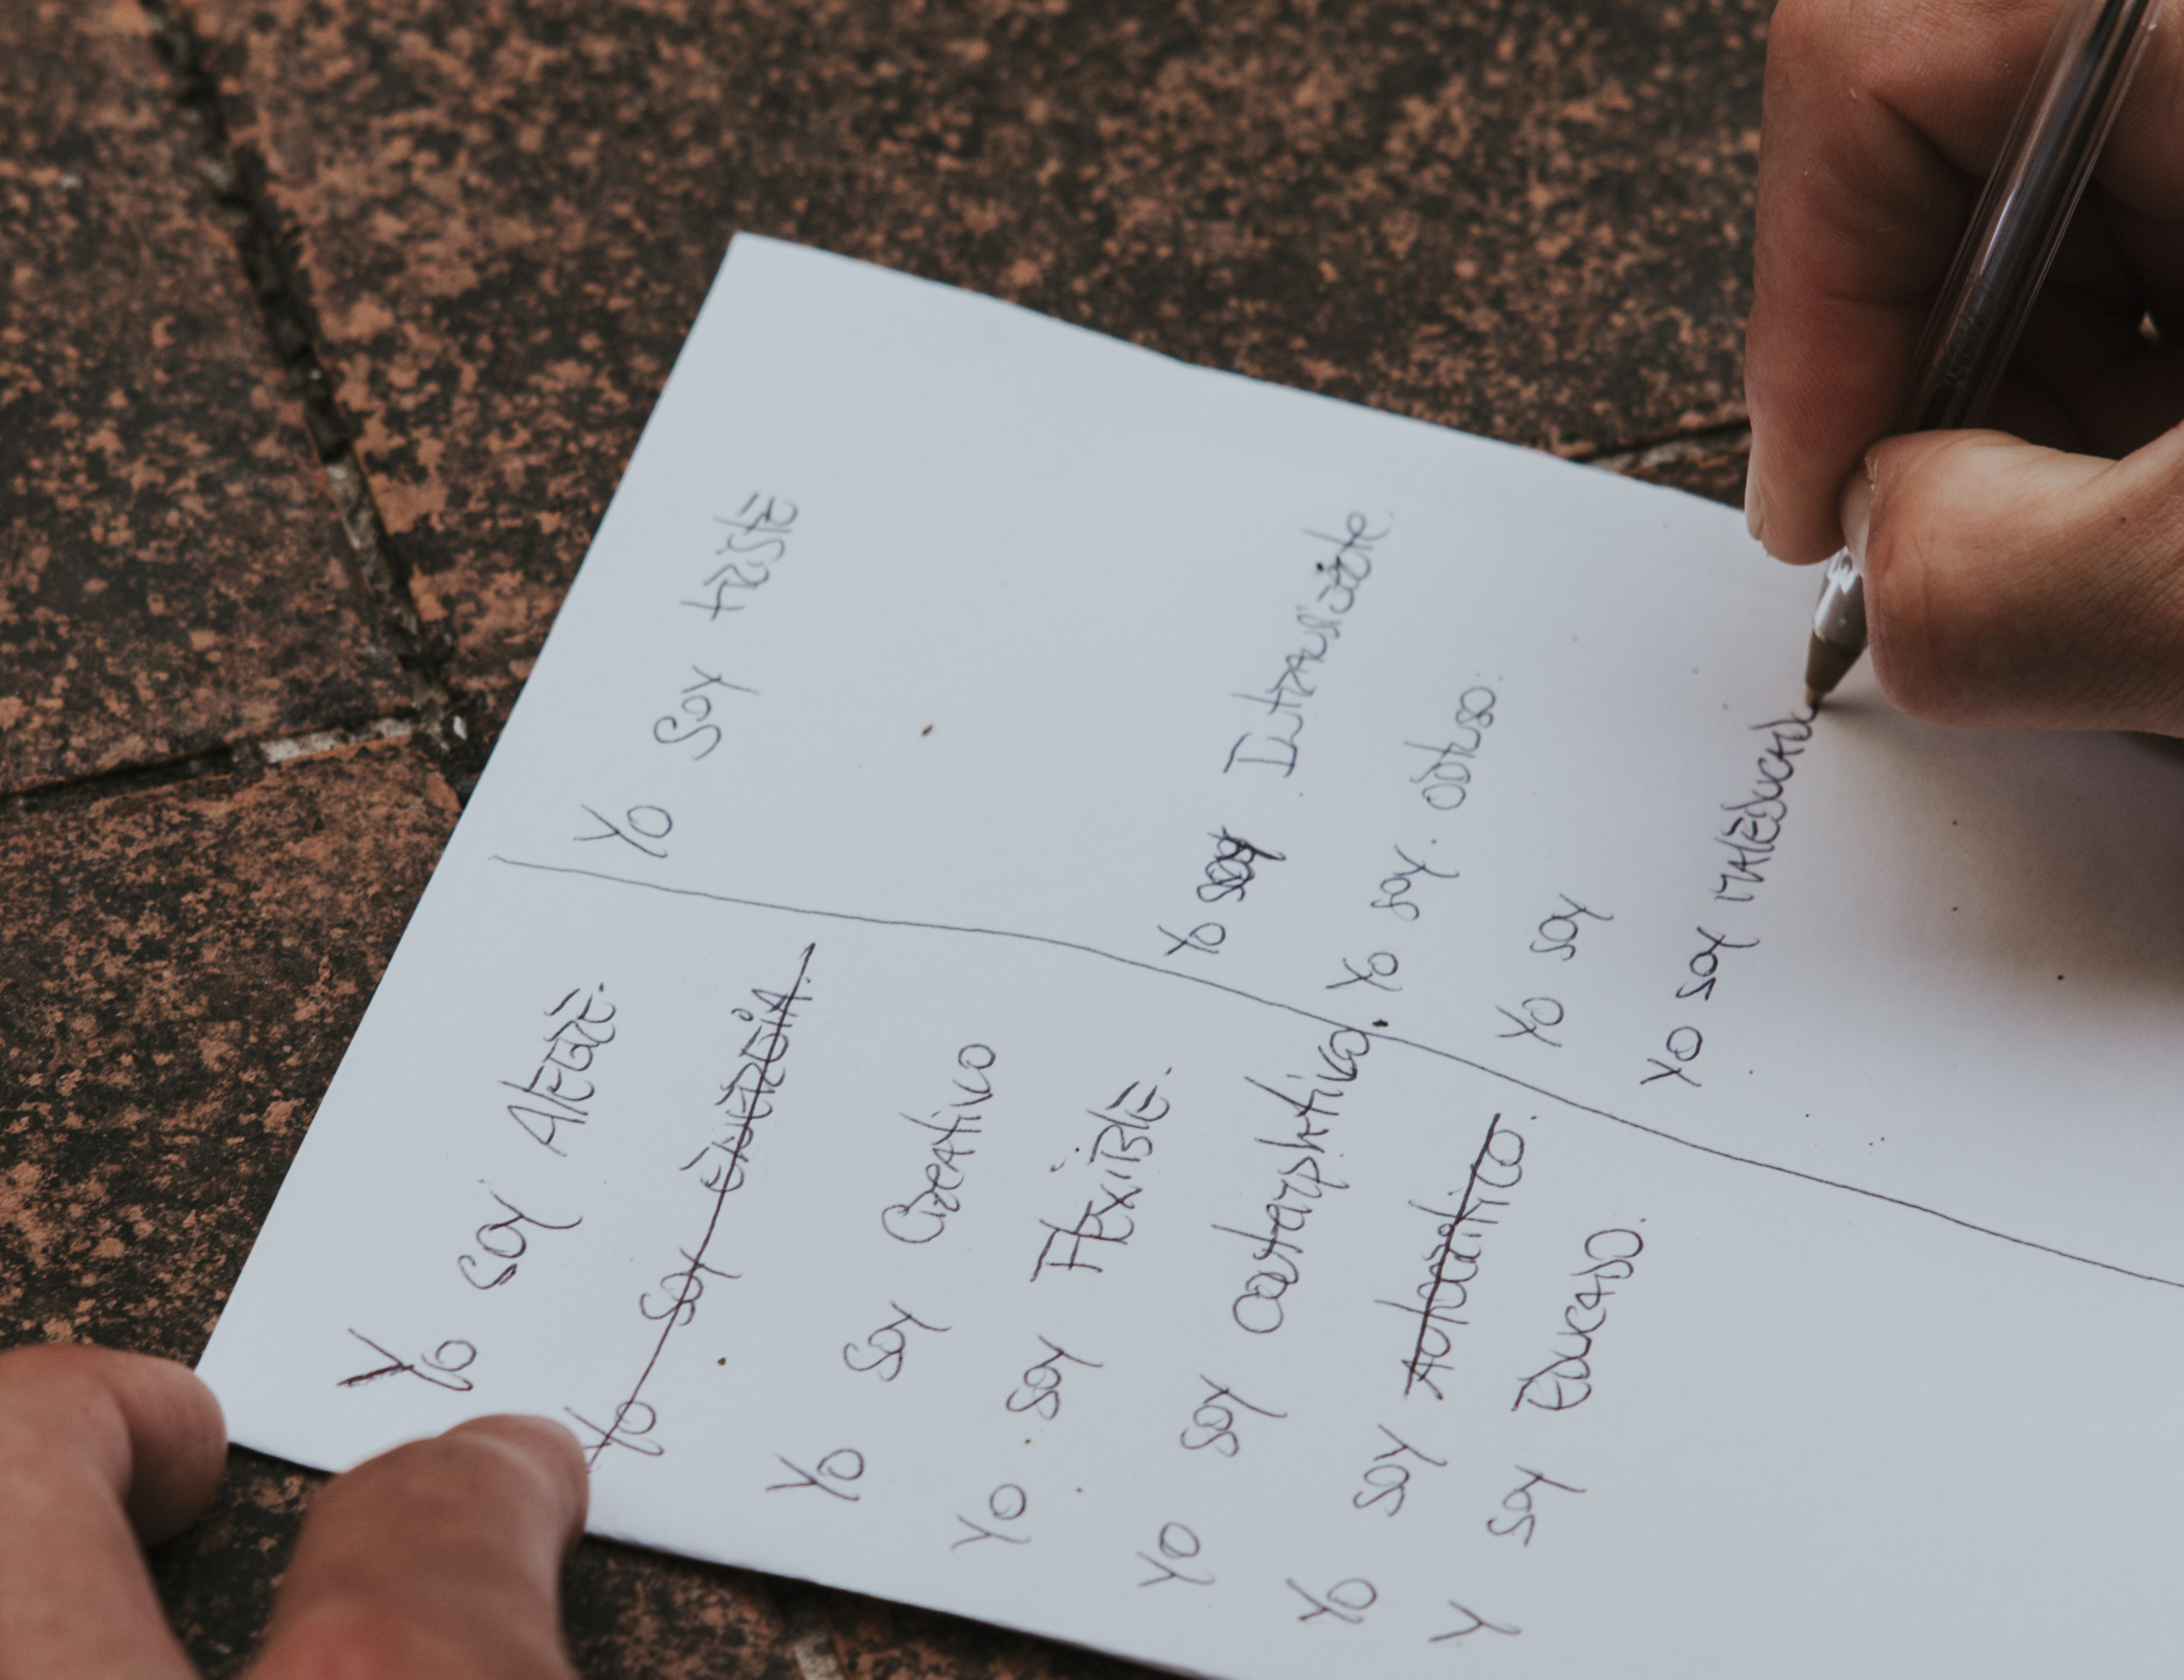 Yo soy Alegre.
Yo soy energía.
Yo soy Creativo
Yo. soy Flexible.
Yo soy
Yo soy
Y soy Educado.
Yo soy triste
Yo soy
Yo soy. obtuso.
Yo soy
Yo soy Maleducado